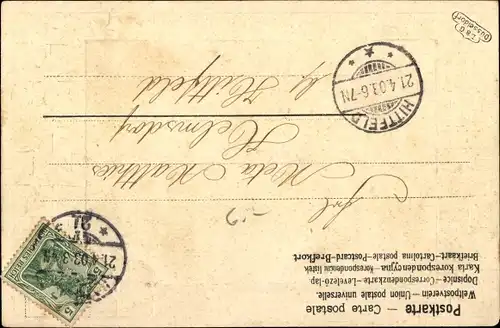 Postkarte — Carte postale
Weltpostverein — Union postale universelle.
Dopisnice — Correspondenzkarte — Levelező-lap
Karta korespondencyjna — Korespondenční lístek
Briefkaart — Cartolina postale — Postcard — Brefkort
Frl.
Meta Matthies
Helmsdorf
bei Hittfeld
HITTFELD
21.4.03.6-7N
21.4.03.3-4N
Düsseldorf